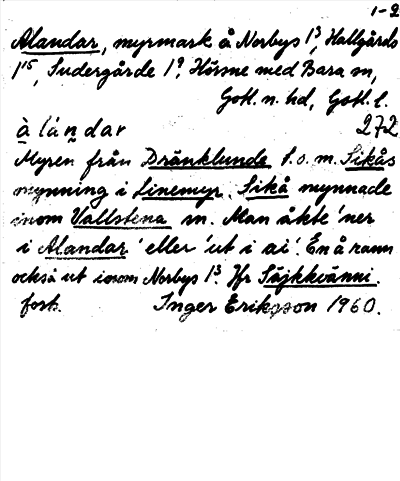 1-2
Alandar, myrmark å Norbys 1³, Hallgårds
1¹⁵, Sudergårde 1⁹. Hörsne med Bara sn,
Gotl. n. hd, Gotl. l.
à lándar 272
Myren från Dränklunde t.o.m. Sikås
mynning i Linemyr. Sikå mynnade
inom Vallstena sn. Man åkte 'ner
i Alandar' eller 'ut i ai'. En å rann
också ut inom Norbys 1³. Jfr
forts. Inger Erikson 1960.